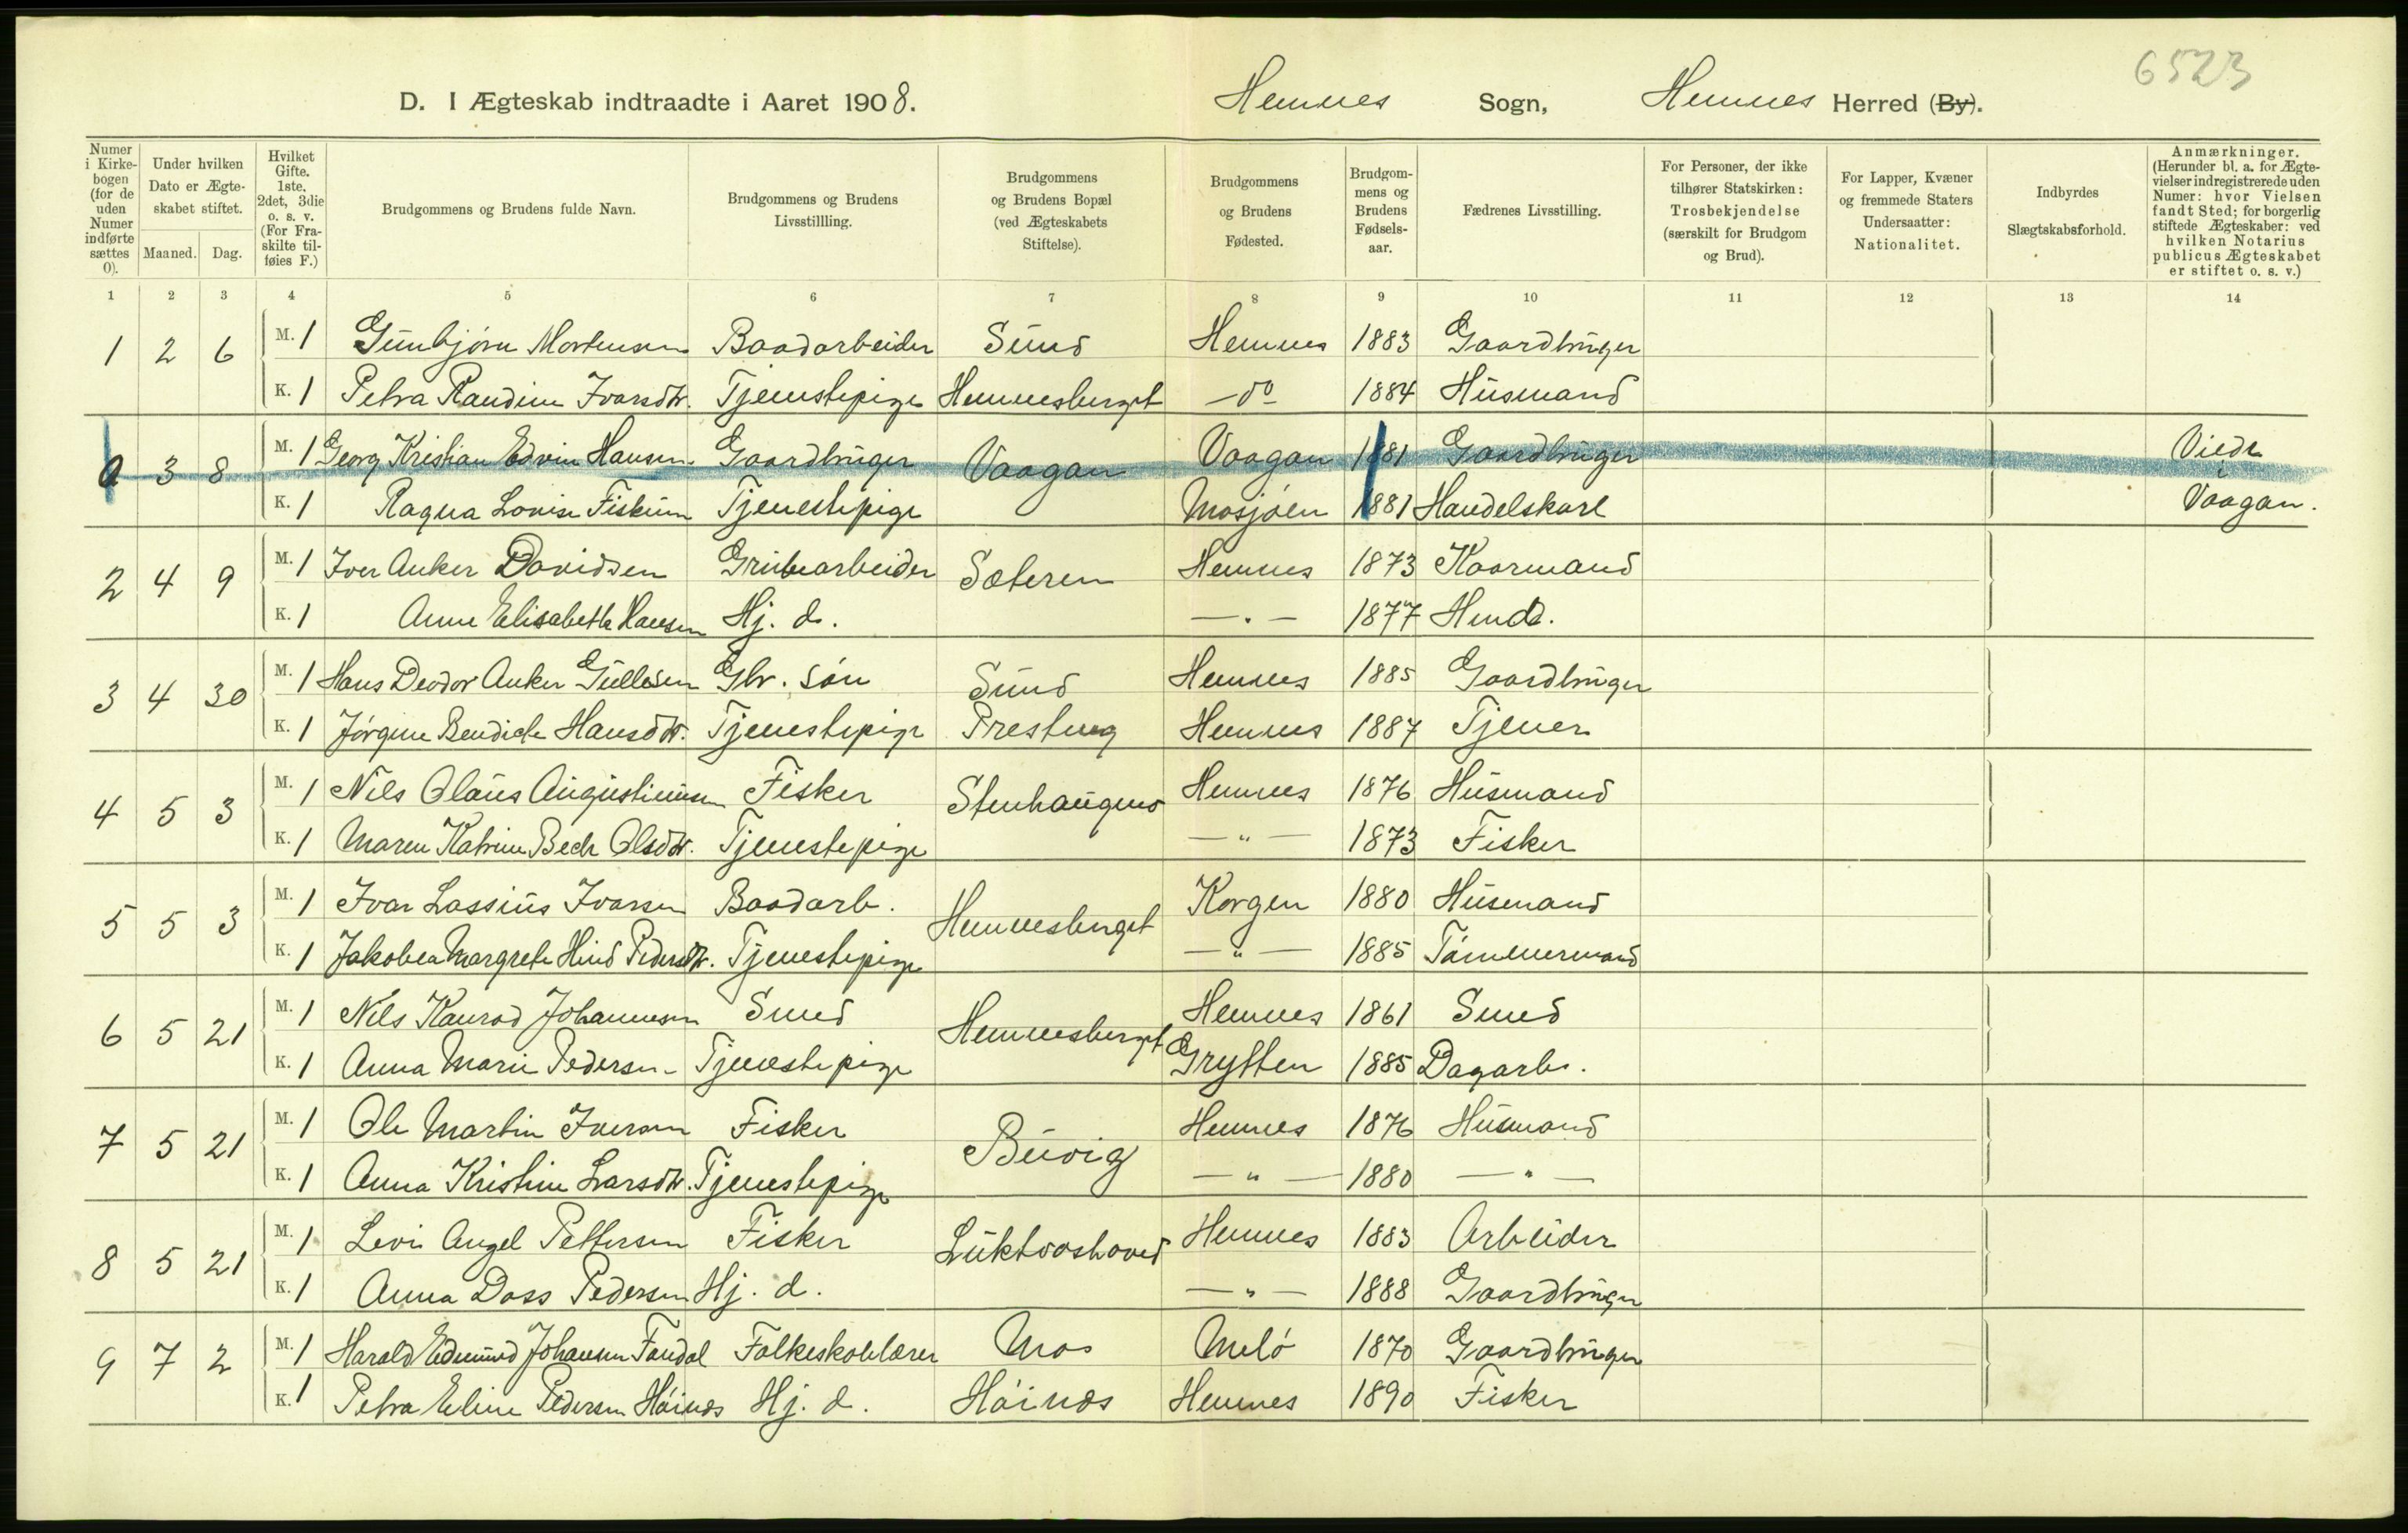 6523
D. I Ægteskab indtraadte i Aaret 1908. Hemnes Sogn, Hemnes Herred (By).
Numer i Kirkebogen (for de uden Numer indførte sættes 0).
Under hvilken Dato er Ægteskabet stiftet.
Maaned. Dag.
Hvilket Gifte. 1ste, 2det, 3die o. s. v. (For Fraskilte tilføies F.)
Brudgommens og Brudens fulde Navn.
Brudgommens og Brudens Livsstillling.
Brudgommens og Brudens Bopæl (ved Ægteskabets Stiftelse).
Brudgommens og Brudens Fødested.
Brudgommens og Brudens Fødselsaar.
Fædrenes Livsstilling.
For Personer, der ikke tilhører Statskirken: Trosbekjendelse (særskilt for Brudgom og Brud).
For Lapper, Kvæner og fremmede Staters Undersaatter: Nationalitet.
Indbyrdes Slægtskabsforhold.
Anmærkninger. (Herunder bl. a. for Ægtevielser indregistrerede uden Numer: hvor Vielsen fandt Sted; for borgerlig stiftede Ægteskaber: ved hvilken Notarius publicus Ægteskabet er stiftet o. s. v.)
1 2 3 4 5 6 7 8 9 10 11 12 13 14
1 2 6 M. 1 Gunbjørn Mortensen Baadarbeider Sund Hemnes 1883 Gaardbruger
K. 1 Petra Raudine Ivarsdtr. Tjenestepige Hemnesberget -do- 1884 Husmand
0 3 8 M. 1 Georg Kristian Edvin Hansen Gaardbruger Vaagan Vaagan 1881 Gaardbruger Viede i
K. 1 Ragna Lovise Fiskum Tjenestepige Mosjøen 1881 Handelskarl Vaagan.
2 4 9 M. 1 Iver Anker Davidsen Grubearbeider Sæteren Hemnes 1873 Kaarmand
K. 1 Anne Elisabeth Hansen Hj. d. — " — 1877 Hmd.
3 4 30 M. 1 Hans Deodor Anker Gullesen Gbr. søn Sund Hemnes 1885 Gaardbruger
K. 1 Jørgine Bendicte Hansdtr. Tjenestepige Presteng Hemnes 1887 Tjener
4 5 3 M. 1 Nils Olaus Augustinusen Fisker Stenhaugens Hemnes 1876 Husmand
K. 1 Maren Katrine Bech Olsdtr. Tjenestepige — " — 1873 Fisker
5 5 3 M. 1 Ivar Lassius Ivarsen Baadarb. Hemnesberget Korgen 1880 Husmand
K. 1 Jakobea Margrete Hind Pedersdtr. Tjenestepige — " — 1885 Tømmermand
6 5 21 M. 1 Nils Konrad Johannesen Smed Hemnesberget Hemnes 1861 Smed
K. 1 Anna Marie Pedersen Tjenestepige Grytten 1885 Dagarb.
7 5 21 M. 1 Ole Martin Iversen Fisker Buvig Hemnes 1876 Husmand
K. 1 Anna Kristine Larsdtr. Tjenestepige — " — 1880 — " —
8 5 21 M. 1 Levi Angel Pettersen Fisker Luktvashaved Hemnes 1883 Arbeider
K. 1 Anna Dass Pedersen Hj. d. — " — 1888 Gaardbruger
9 7 2 M. 1 Harald Edmund Johansen Fondal Folkeskolelærer Mos Melø 1870 Gaardbruger
K. 1 Petra Eline Pedersen Høinæs Hj. d. Høinæs Hemnes 1890 Fisker